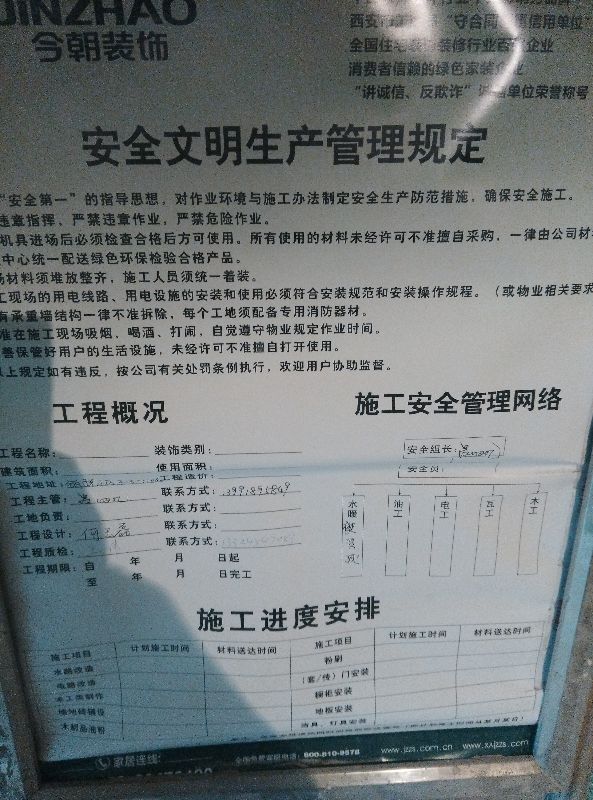 JINZHAO
今朝装饰
西安市 "守合同 信用单位"
全国住宅装饰装修行业百强企业
消费者信赖的绿色家装企业
"讲诚信、反欺诈" 单位荣誉称号
安全文明生产管理规定
"安全第一"的指导思想，对作业环境与施工办法制定安全生产防范措施，确保安全施工。
违章指挥、严禁违章作业，严禁危险作业。
机具进场后必须检查合格后方可使用。所有使用的材料未经许可不准擅自采购，一律由公司材
中心统一配送绿色环保检验合格产品。
材料须堆放整齐，施工人员须统一着装。
工现场的用电线路、用电设施的安装和使用必须符合安装规范和安装操作规程。（或物业相关要求
有承重墙结构一律不准拆除，每个工地须配备专用消防器材。
准在施工现场吸烟、喝酒、打闹，自觉遵守物业规定作业时间。
善保管好用户的生活设施，未经许可不准擅自打开使用。
以上规定如有违反，按公司有关处罚条例执行，欢迎用户协助监督。
工程概况
工程名称： 装饰类别：
建筑面积： 使用面积：
工程地址： 工程造价：
工程主管： 联系方式：
工地负责： 联系方式：
工程设计： 联系方式：
工程质检： 联系方式：
工程期限：自 年 月 日起
至 年 月 日完工
施工安全管理网络
安全组长：
安全员：
水暖
油工
电工
瓦工
木工
施工进度安排
施工项目 计划施工时间 材料送达时间 施工项目 计划施工时间 材料送达时间
水路改造 粉刷
电路改造 （套/传）门安装
木工类制作 橱柜安装
墙地砖铺设 地板安装
木制品油粉 洁具、灯具安装
家居连线：
全国免费客服电话：800-810-9578 www.jzzs.com.cn www.xajzzs.com